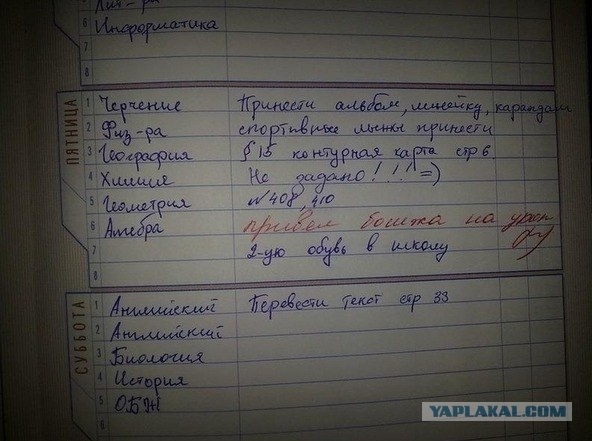 Лит-ра
6 Информатика
7
8
ПЯТНИЦА
1 Черчение Принести альбом, линейку, карандаш
2 Физ-ра спортивные лыжи принести
3 География § 15 контурная карта стр 6.
4 Химия Не задано! !!! =)
5 Геометрия № 408, 410
6 Алгебра привел бомжа на урок
7 2-ую обувь в школу
8
СУББОТА
1 Английский Перевести текст стр 33
2 Английский
3 Биология
4 История
5 ОБЖ
6
YAPLAKAL.COM